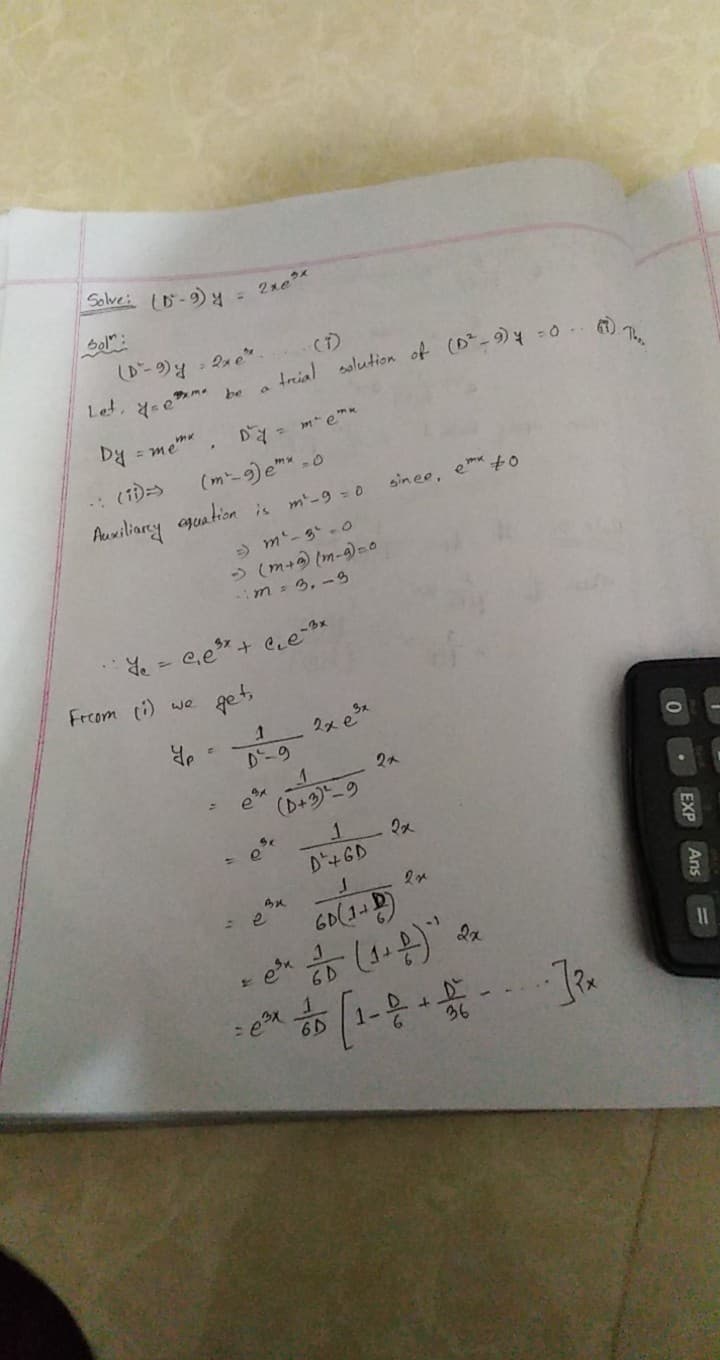 Solve: (D²-9) y = 2xe³ˣ
Solⁿ:
(D²-9)y = 2xe³ˣ ...... (i)
Let, y=eᵐˣ be a trial solution of (D²-9)y =0 ... (ii) Then
Dy = meᵐˣ , D²y = m²eᵐˣ
∴ (ii)⇒ (m²-9)eᵐˣ =0
Auxiliary equation is m²-9 = 0 since, eᵐˣ ≠0
⇒ m²-3² =0
⇒ (m+3)(m-3)=0
∴ m = 3, -3
∴ y_c = c₁e³ˣ + c₂e⁻³ˣ
From (i) we get,
y_p = 1/(D²-9) 2x e³ˣ
= e³ˣ 1/((D+3)²-9) 2x
= e³ˣ 1/(D²+6D) 2x
= e³ˣ 1/(6D(1+D/6)) 2x
= e³ˣ 1/(6D) (1+D/6)⁻¹ 2x
= e³ˣ 1/(6D) [1-D/6 + D²/36 - .....]2x
0 • EXP Ans =